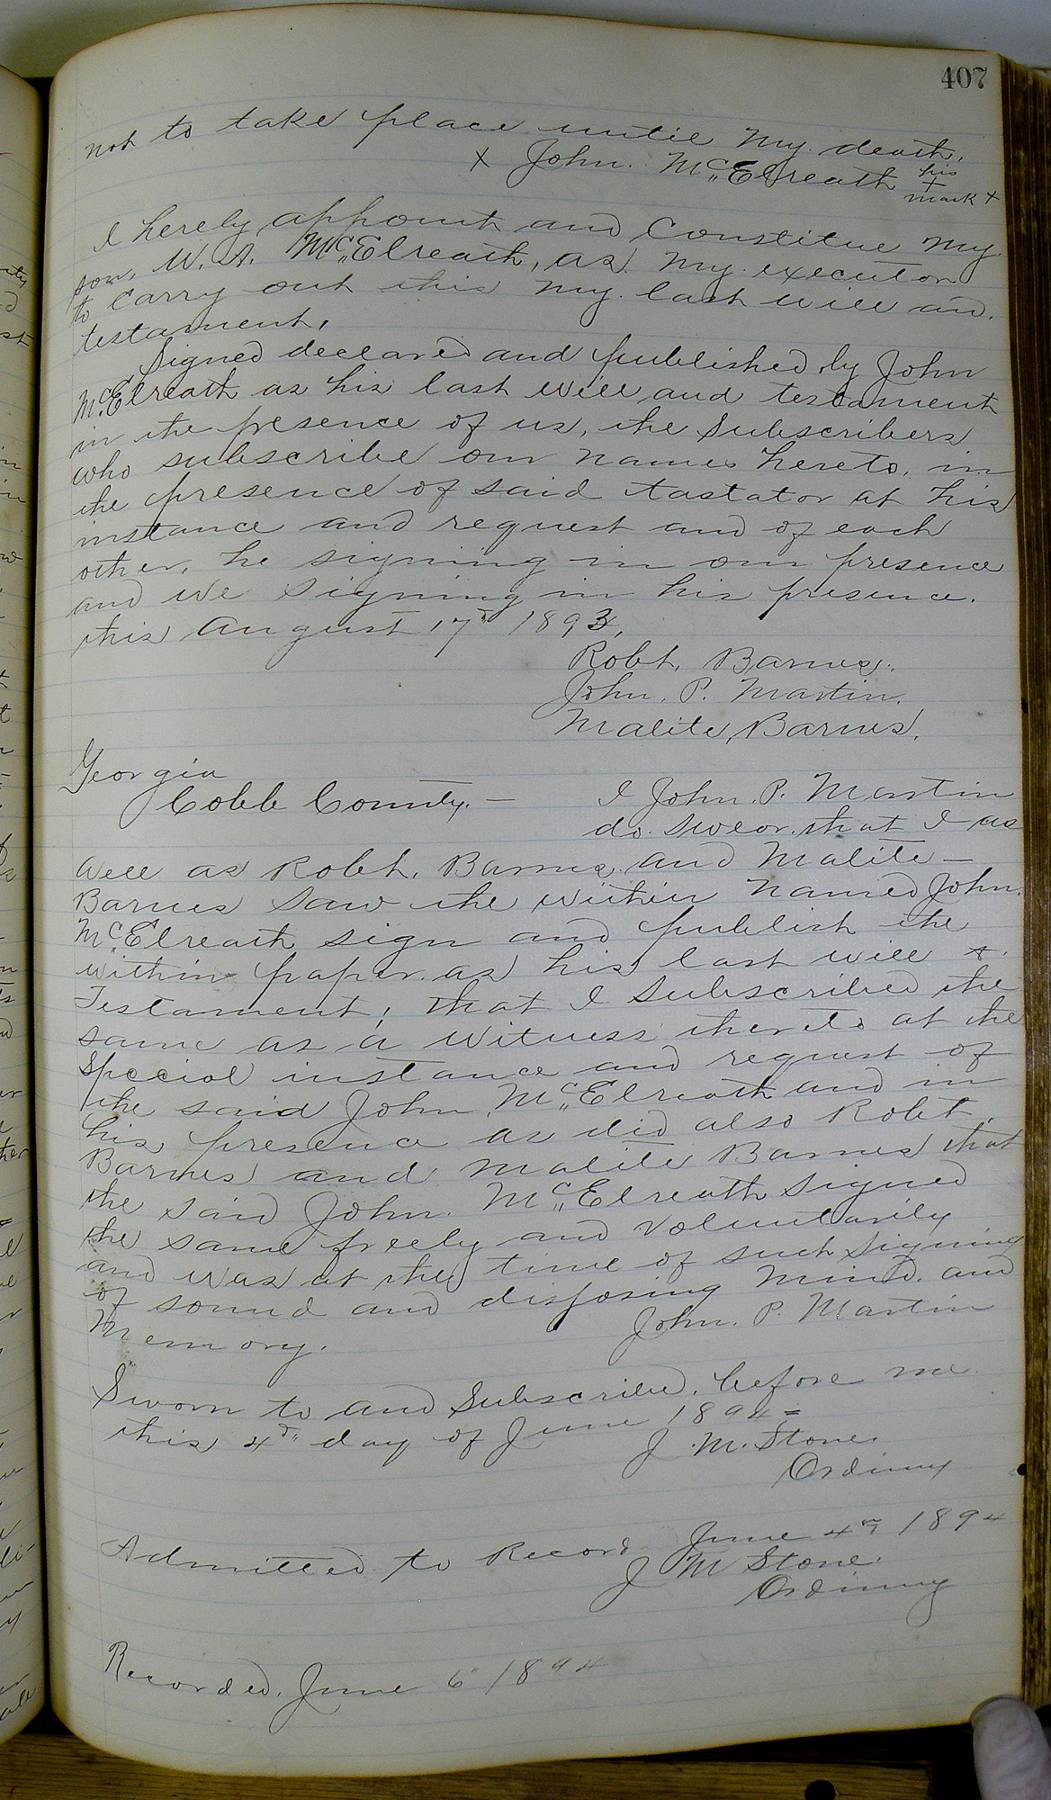 407
not to take place until my death.
x John. McElreath his
+
mark x
I herely appoint and Constitue my
son, W. A. McElreath, as my executor
to carry out this my last will and.
testament,
Signed declared and published by John
McElreath as his last will and testament
in the presence of us, the Subscribers
who subscribe our names hereto, in
the presence of said tastator at his
instance and request and of each
other, he signing in our presence
and we signing in his presence.
this August 17th 1893,
Robt. Barnes.
John. P. Martin.
Malite, Barnes.
Georgia
Cobb County. - I John. P. Martin
do. Swear. that I as
well as Robt. Barnes and Malite -
Barnes saw the within named John.
McElreath sign and publish the
within paper as his last will &.
Testament; that I Subscribed the
same as a witness thereto at the
Special instance and request of
the said John McElreath and in
his presence as did also Robt.
Barnes and Malite Barnes that
the said John. McElreath signed
the same freely and voluntarily
and was at the time of such signing
of sound and disposing mind. and
Memory. John. P. Martin
Sworn to and Subscribed, before me.
this 4th day of June 1894 =
J. M. Stone.
Ordinary
Admitted to Record June 4th 1894
J M Stone.
Ordinary
Recorded. June 6 1894